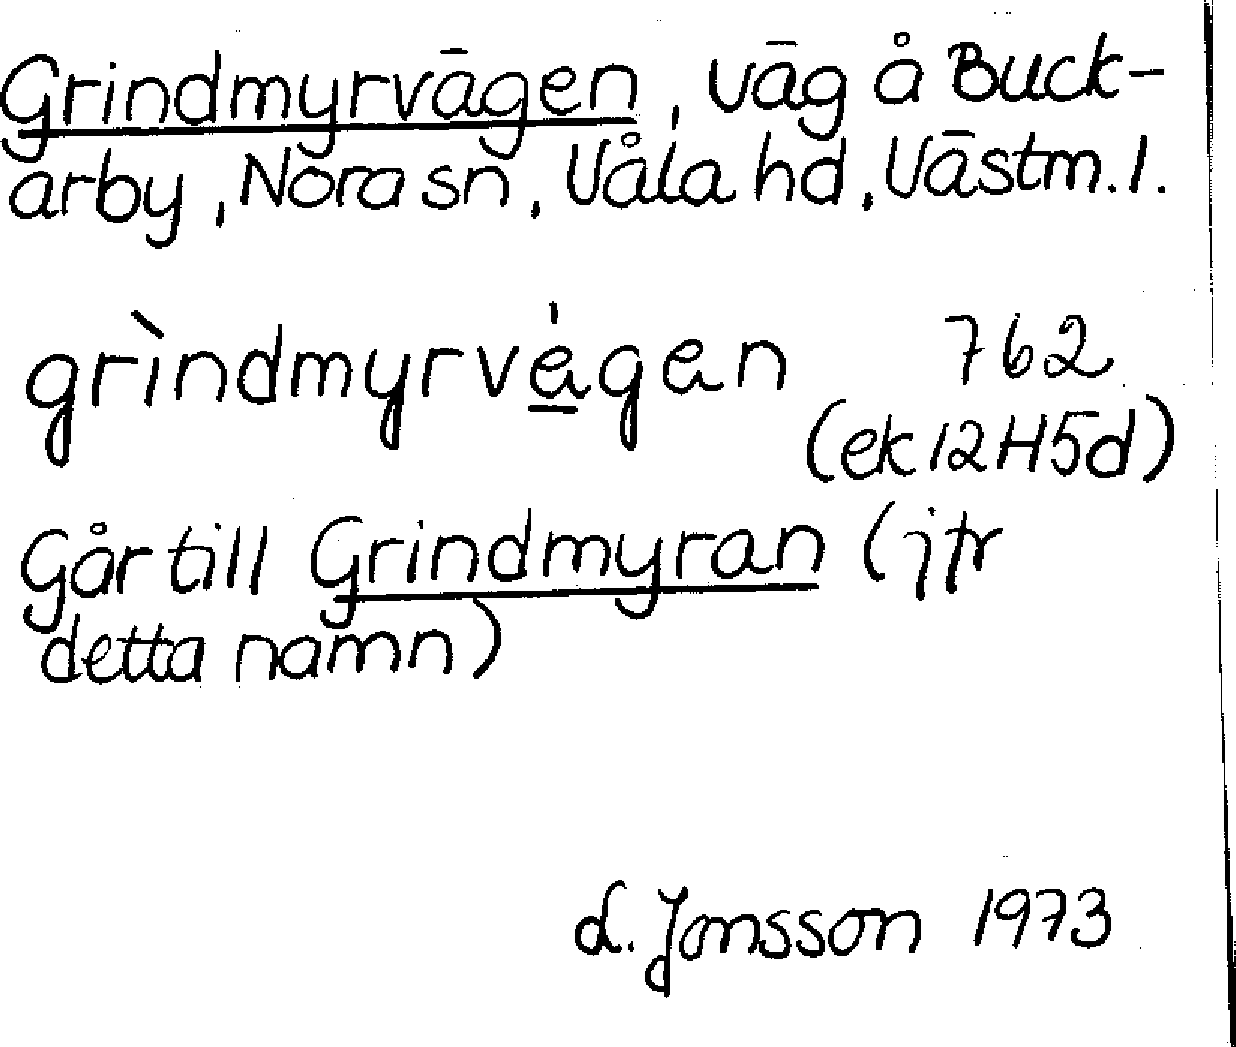 Grindmyrvägen, väg å Buck-
arby, Nora sn, Våla hd, Västm. l.
grìndmyrvá̱gen 762
(ek 12H5d)
Går till Grindmyran (jfr
detta namn)
L. Jonsson 1973